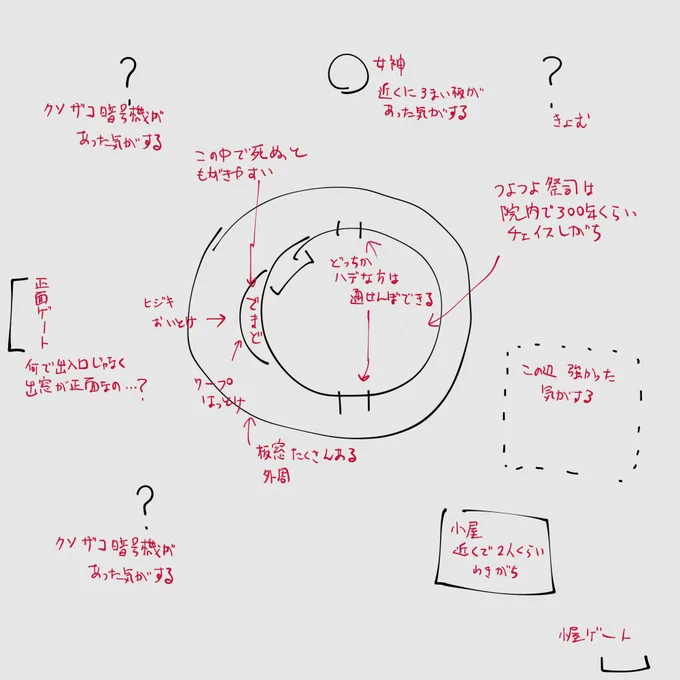 ?
クソザコ暗号機が
あった気がする
女神
近くにうまい板が
あった気がする
?
きょむ
この中で死ぬって
もがきやすい
つよつよ祭司は
院内で300年くらい
チェイスしがち
どっちか
ハデな方は
通せんぼできる
正面ゲート
何で出入口じゃなく
出窓が正面なの…?
ヒジキ
おいとけ
でまど
ワープ
はっとけ
板窓たくさんある
外周
この辺 強かった
気がする
?
クソザコ暗号機が
あった気がする
小屋
近くで2人くらい
わきがち
小屋ゲート